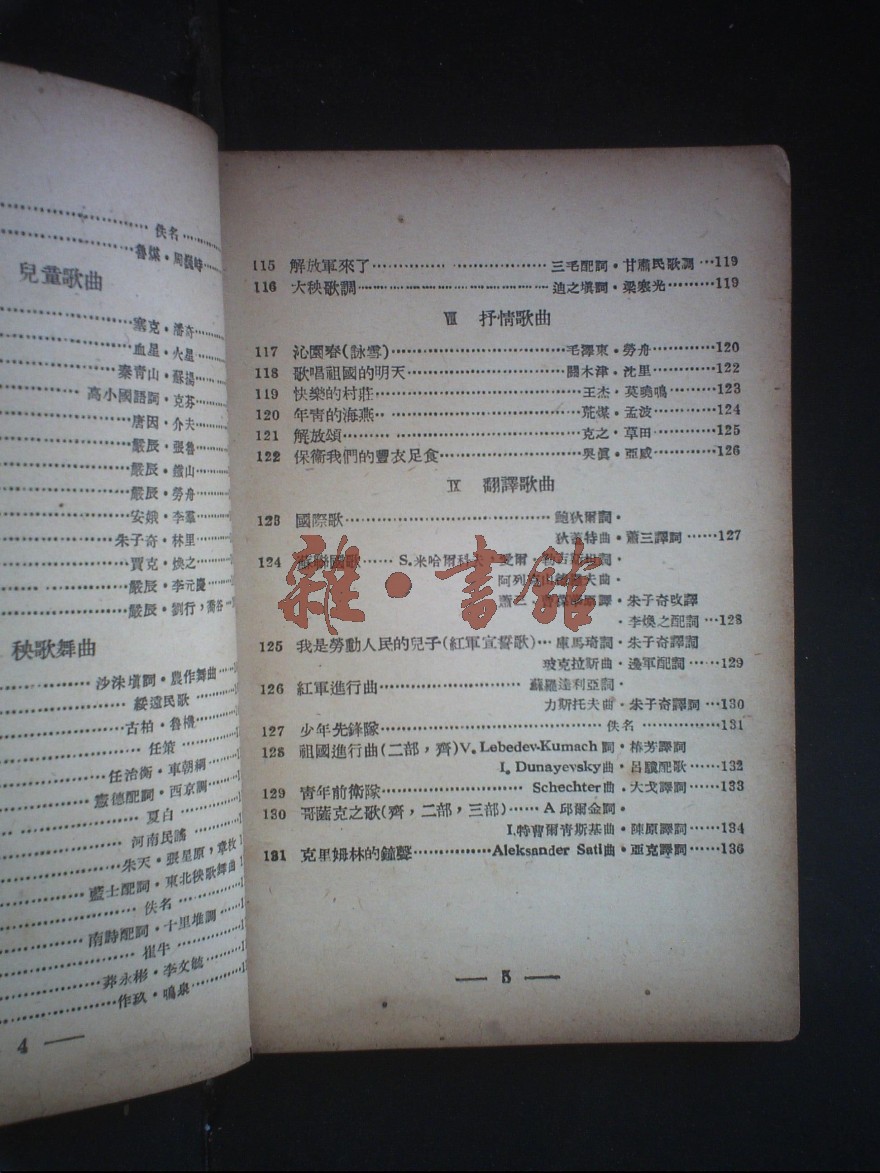 佚名
魯煤・周巍峙
兒童歌曲
塞克・潘奇
血星・火星
秦青山・蘇揚
高小國語詞・克芬
唐因・介夫
嚴辰・張魯
嚴辰・鐵山
嚴辰・勞舟
安娥・李羣
朱子奇・林里
賈克・煥之
嚴辰・李元慶
嚴辰・劉行,喬谷
秧歌舞曲
沙洙塡詞・農作舞曲
綏遠民歌
古柏・魯機
任策
任治衡・車朝綱
憲德配詞・西京調
夏白
河南民謠
朱天・張星原,章枚
藍士配詞・東北秧歌舞曲
佚名
南時配詞・十里堆調
崔牛
莽永彬・李文毓
作玖・鳴泉
4
115 解放軍來了 三毛配詞・甘肅民歌調 119
116 大秧歌調 迪之塡詞・梁寒光 119
Ⅷ 抒情歌曲
117 沁園春(詠雪) 毛澤東・勞舟 120
118 歌唱祖國的明天 關木津・沈里 122
119 快樂的村莊 王杰・莫曉鳴 123
120 年靑的海燕 荒煤・孟波 124
121 解放頌 克之・草田 125
122 保衛我們的豐衣足食 吳眞・亞威 126
Ⅸ 翻譯歌曲
123 國際歌 鮑狄爾詞・
狄蓋特曲・蕭三譯詞 127
124 蘇聯國歌 S.米哈爾科夫,愛爾・詞・
阿列克山德夫曲・
蕭三,原譯・朱子奇改譯
李煥之配詞 128
125 我是勞動人民的兒子(紅軍宣誓歌) 庫馬琦詞・朱子奇譯詞
玻克拉斯曲・邊軍配詞 129
126 紅軍進行曲 蘇羅達利亞詞・
力斯托夫曲・朱子奇譯詞 130
127 少年先鋒隊 佚名 131
128 祖國進行曲(二部,齊)V. Lebedev-Kumach 詞・椿芳譯詞
I. Dunayevsky曲・呂驥配歌 132
129 靑年前衛隊 Schechter曲・大戈譯詞 133
130 哥薩克之歌(齊,二部,三部) A 邱爾金詞・
I.特曹爾青斯基曲・陳原譯詞 134
131 克里姆林的鐘聲 Aleksander Sati曲・亞克譯詞 136
5
雜・書館